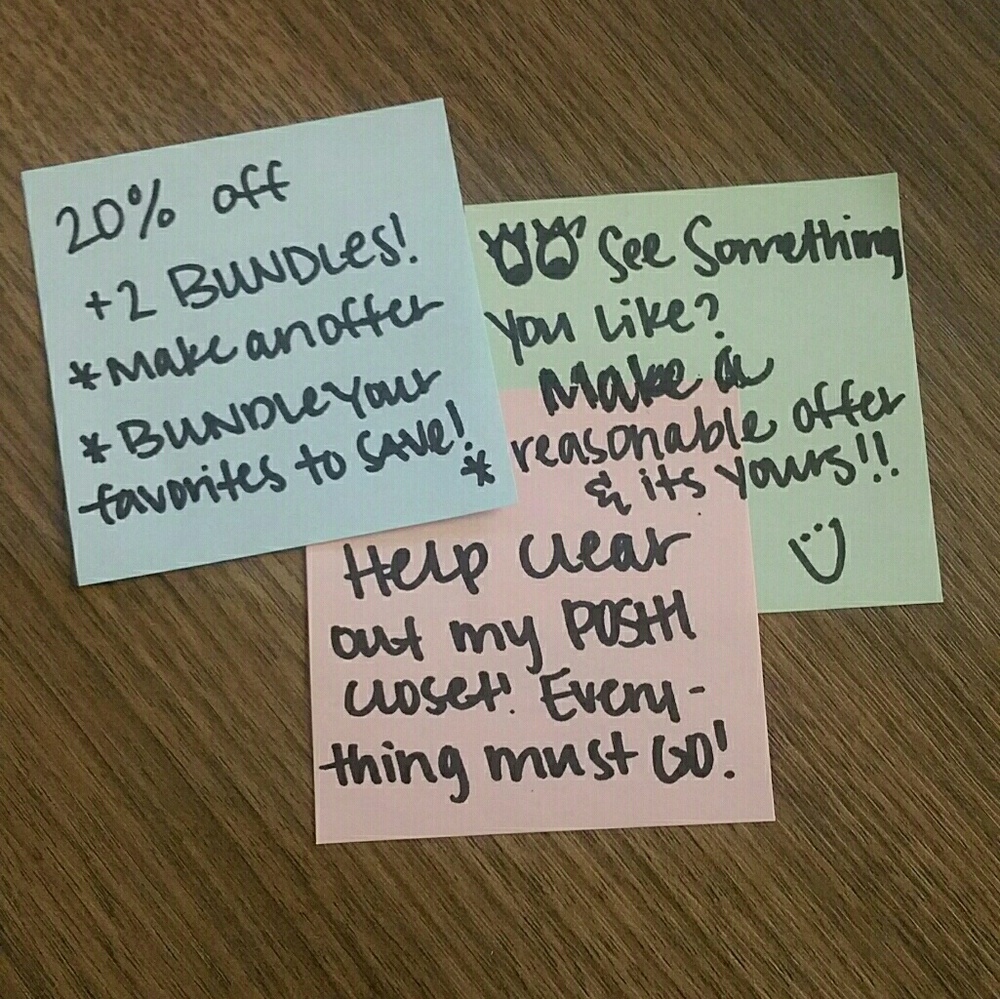 20% off
+2 BUNDLES!
*Make an offer
*BUNDLE Your
favorites to SAVE!
*
See Something
You Like?
Make a
reasonable offer
& its yours!!
Help Clear
out my POSH
Closet! Every-
thing must GO!